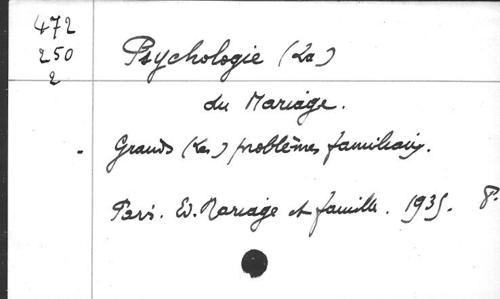 472
250
2
Psychologie (La)
du Mariage.
Grands (Les) problèmes familiaux.
Paris. Ed. Mariage et famille. 1935. 8°.